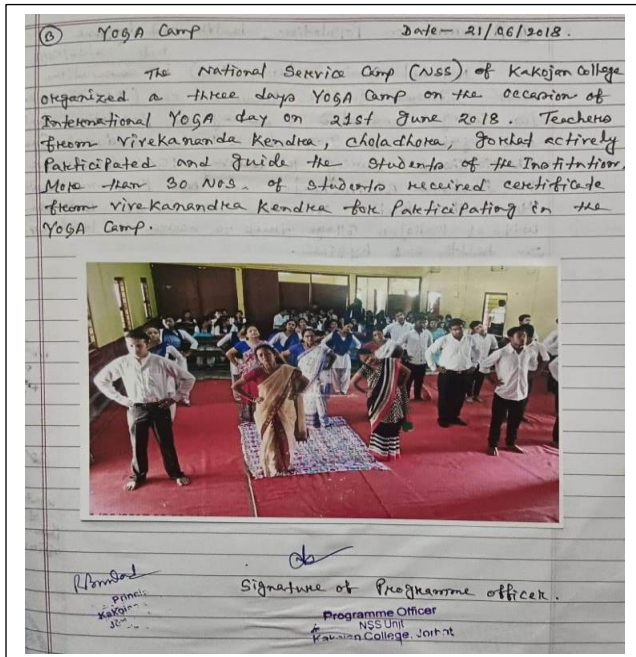 (B) YOGA Camp Date- 21/06/2018.
The National Service Camp (NSS) of Kakojan College
organized a three days YOGA Camp on the occasion of
International YOGA day on 21st June 2018. Teachers
from Vivekananda Kendra, choladhora, Jorhat actively
Participated and guide the Students of the Institution.
More than 30 Nos. of students received certificate
from vivekanandra Kendra for Participating in the
YOGA Camp.
Signature of Programme officer.
Programme Officer
NSS Unit
Kakojan College, Jorhat